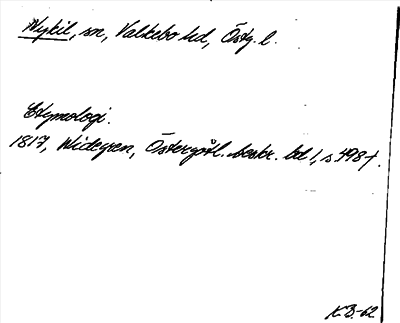 Nykil, sn, Valkebo hd, Östg. l.
Etymologi.
1817, Widegren, Östergötl. beskr. bd 1, s 498 f.
K.B-62